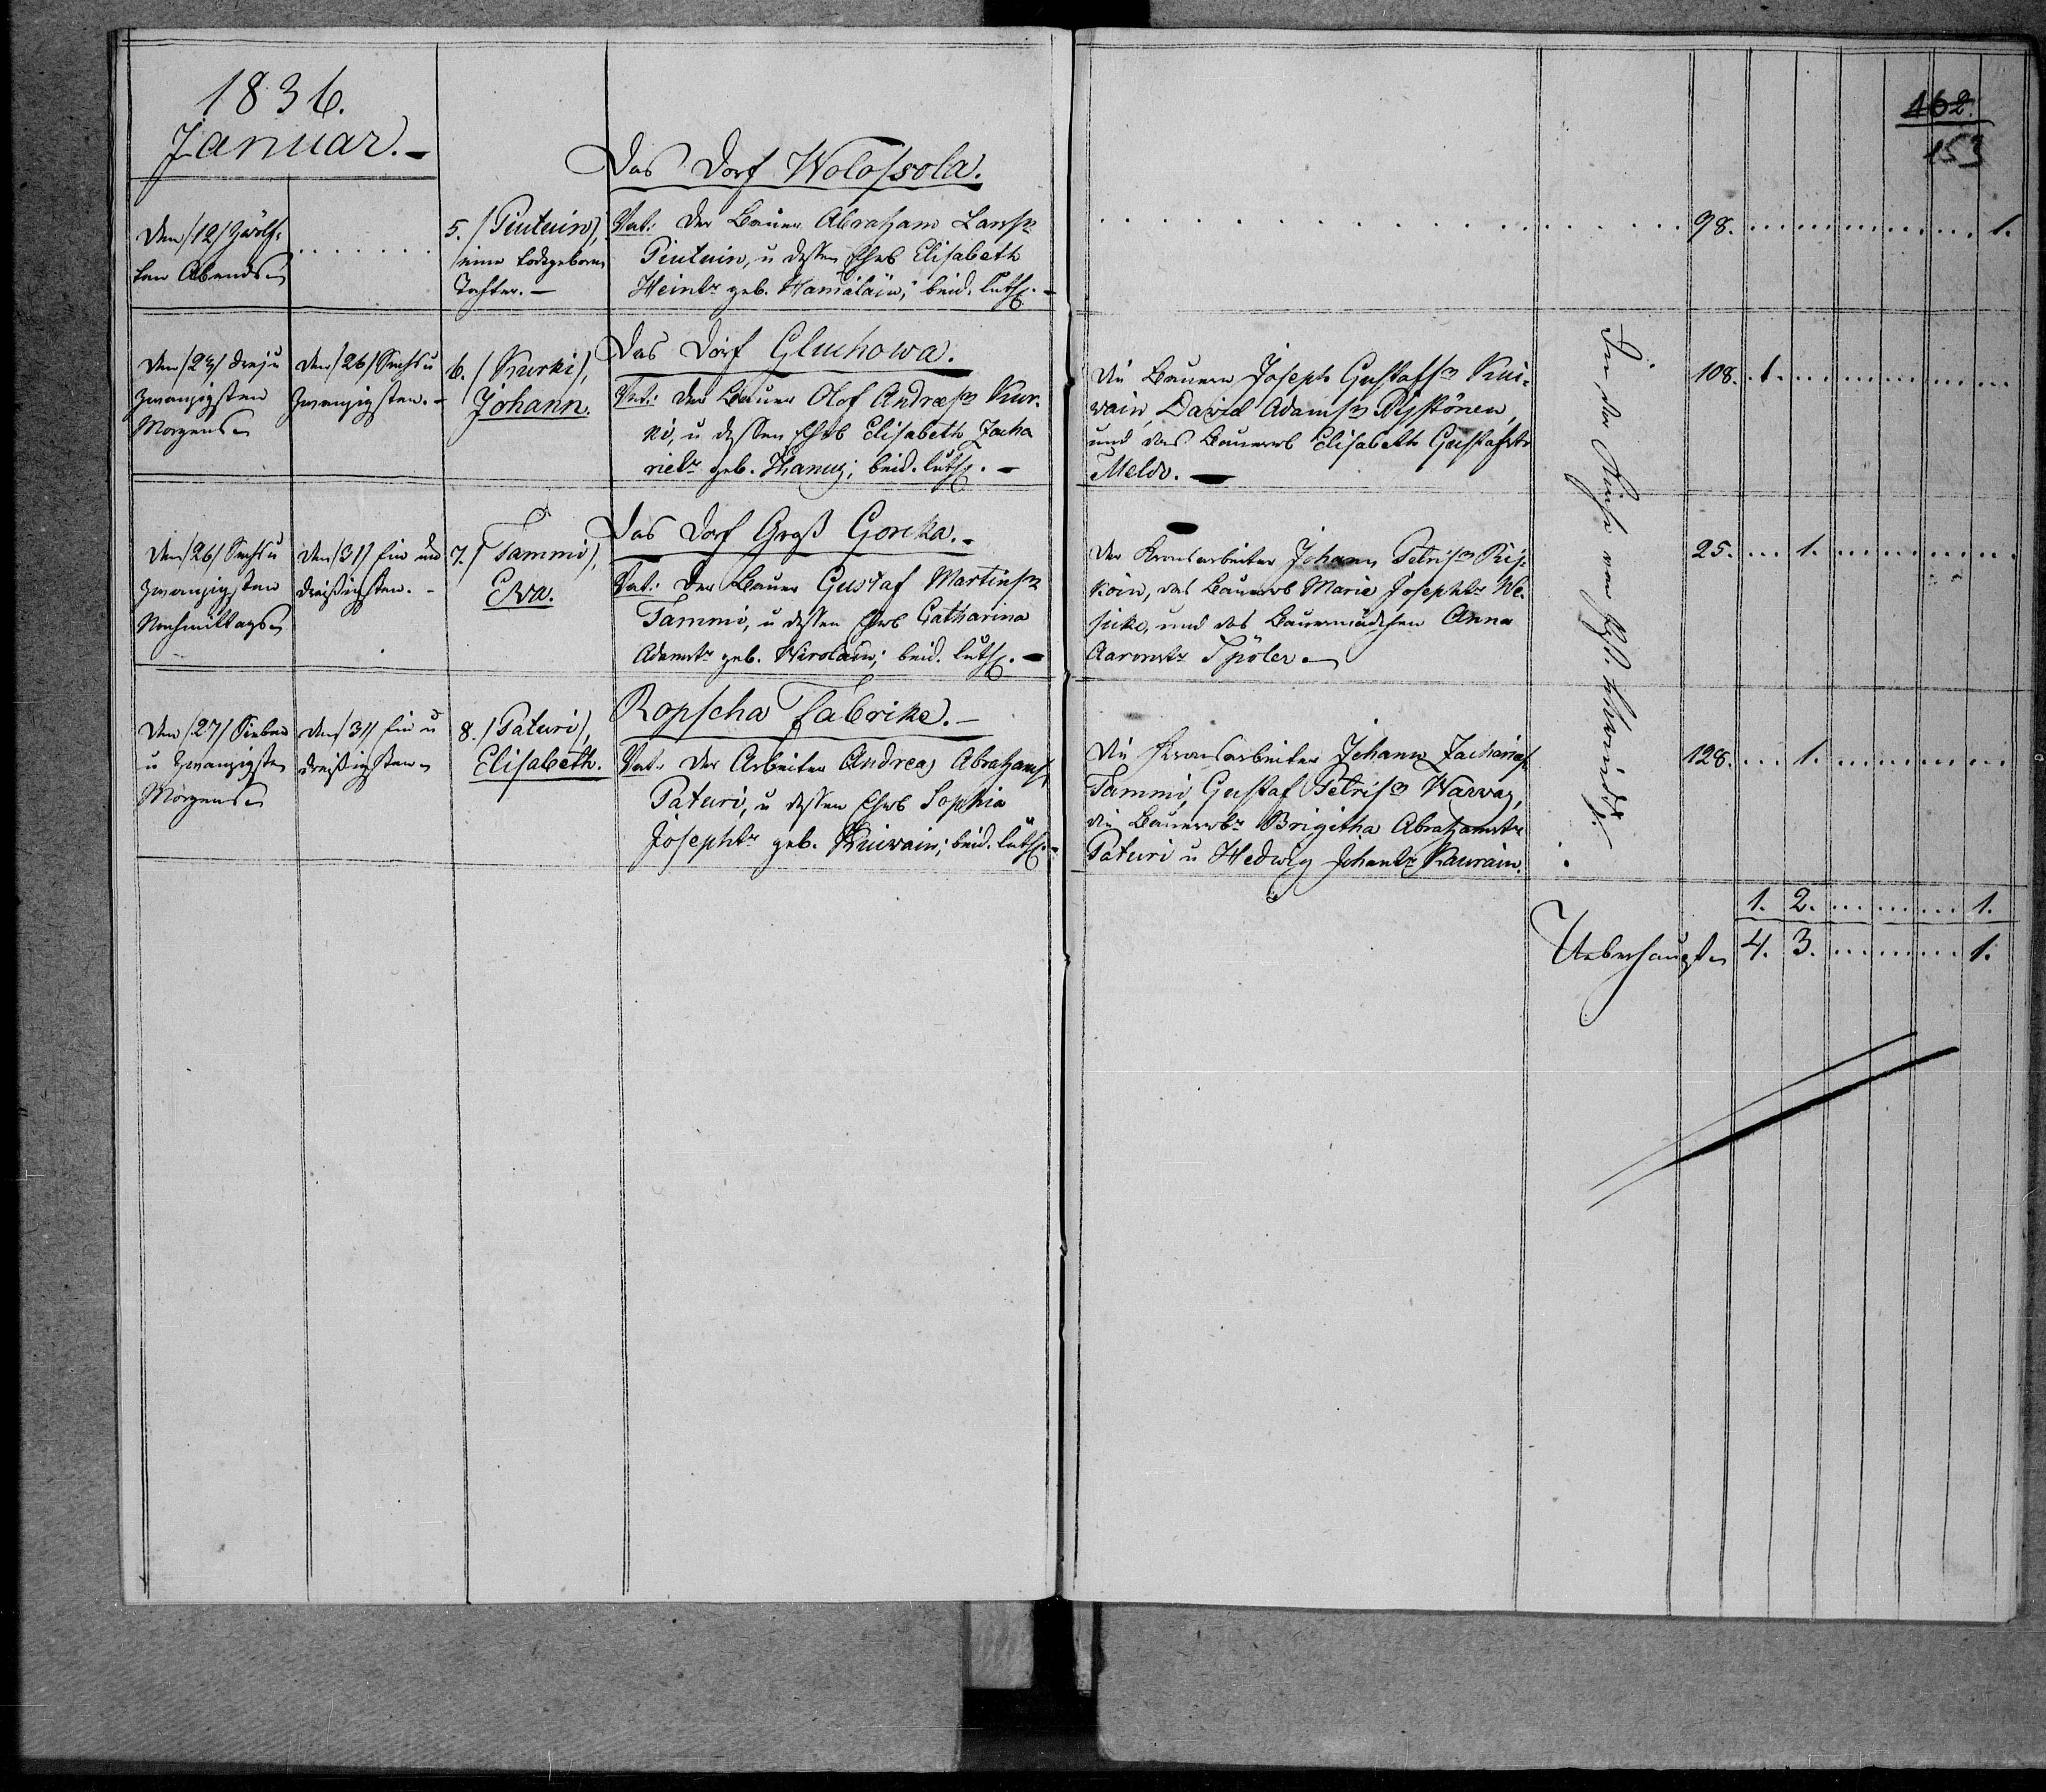 1836.
Januar.
162.
153
Das Dorf Wolossola.
Den /12/ zwölf-
ten Abends
5. /Piutuin/,
eine todtgeborne
Tochter.
Vat: Der Bauer Abraham Larss.
Piutuin, u dessen Ehwb Elisabeth
Heintr geb. Hamäläin; beid. luth.
98. 1.
Das Dorf Gluchowa.
Den /23/ drei u
zwanzigsten
Morgens
Den /26/ Sechs u
zwanzigsten.
6. /Kurki/,
Johann.
Vat: Der Bauer Olof Andreass Kur-
ki, u dessen Ehwb Elisabeth Zacha
rietr geb. ; beid. luth.
Die Bauern Joseph Gustafss Kui-
wain, David Adamss
und das Bauerwb Elisabeth Gustafstr
Melder.
108. 1.
Das Dorf Groß Gorcka.
Den /26/ Sechs u
zwanzigsten
Nachmittags
Den /31/ Ein und
dreißigsten.
7. /Tammi/,
Eva.
Vat: Der Bauer Gustaf Martinss
Tammi, u dessen Ehwb Catharina
Adamstr geb. Wirolain; beid. luth.
Der Kronsarbeiter Johann Petriss
koin, das Bauerwb Marie Josephtr We-
, und das Bauermädchen Anna
Aaronstr
25. 1.
Ropscha Fabrike.
Den /27/ Sieben
u zwanzigsten
Morgens
Den /31/ Ein u
dreißigsten
8. /Paturi/,
Elisabeth.
Vat: Der Arbeiter Andreas Abrahams,
Paturi, u dessen Ehwb Sophia
Josephtr geb. Kuiwain; beid. luth.
Die Kronsarbeiter Johann Zacharias
Tammi, Gustaf Petriss Warwas,
die Bauerwbr Brigitha Abrahamstr
Paturi u Hedwig Johanstr Kaurain.
128. 1.
In der Kirche von
1. 2. 1.
Ueberhaupt 4. 3. 1.